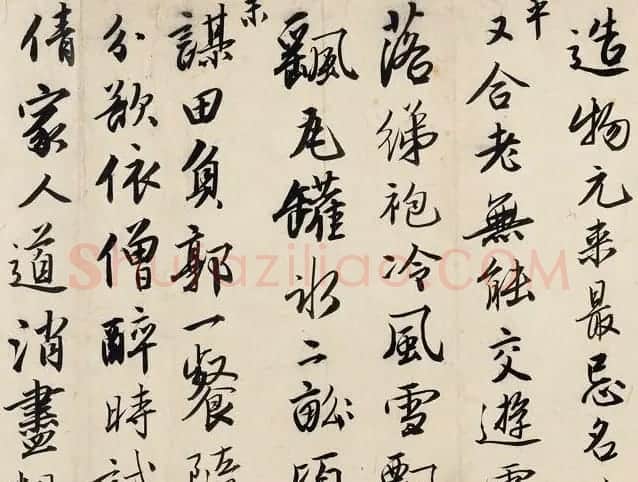 造物元来最忌名
半
又合老無能交遊零
落綈袍冷風雪飄
飄瓦罐冰二畝
未
謀田負郭一餐隨
分欲依僧醉時試
倩家人道消盡
shufaziliao.COM